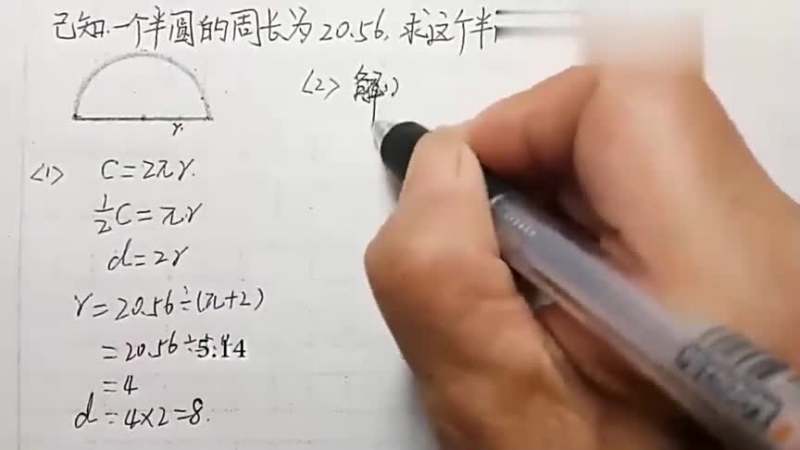 已知一个半圆的周长为20.56,求这个半
r.
<1> C=2πr.
½C=πr
d=2r
r=20.56÷(π+2)
=20.56÷5.14
=4
d=4×2=8.
<2> 解:)